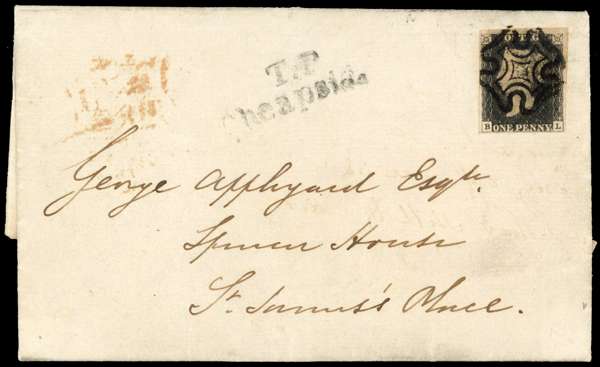 T.P
Cheapside
POSTAGE
B ONE PENNY L
George Applyard Esqre
Spencer House
St. James's Place.